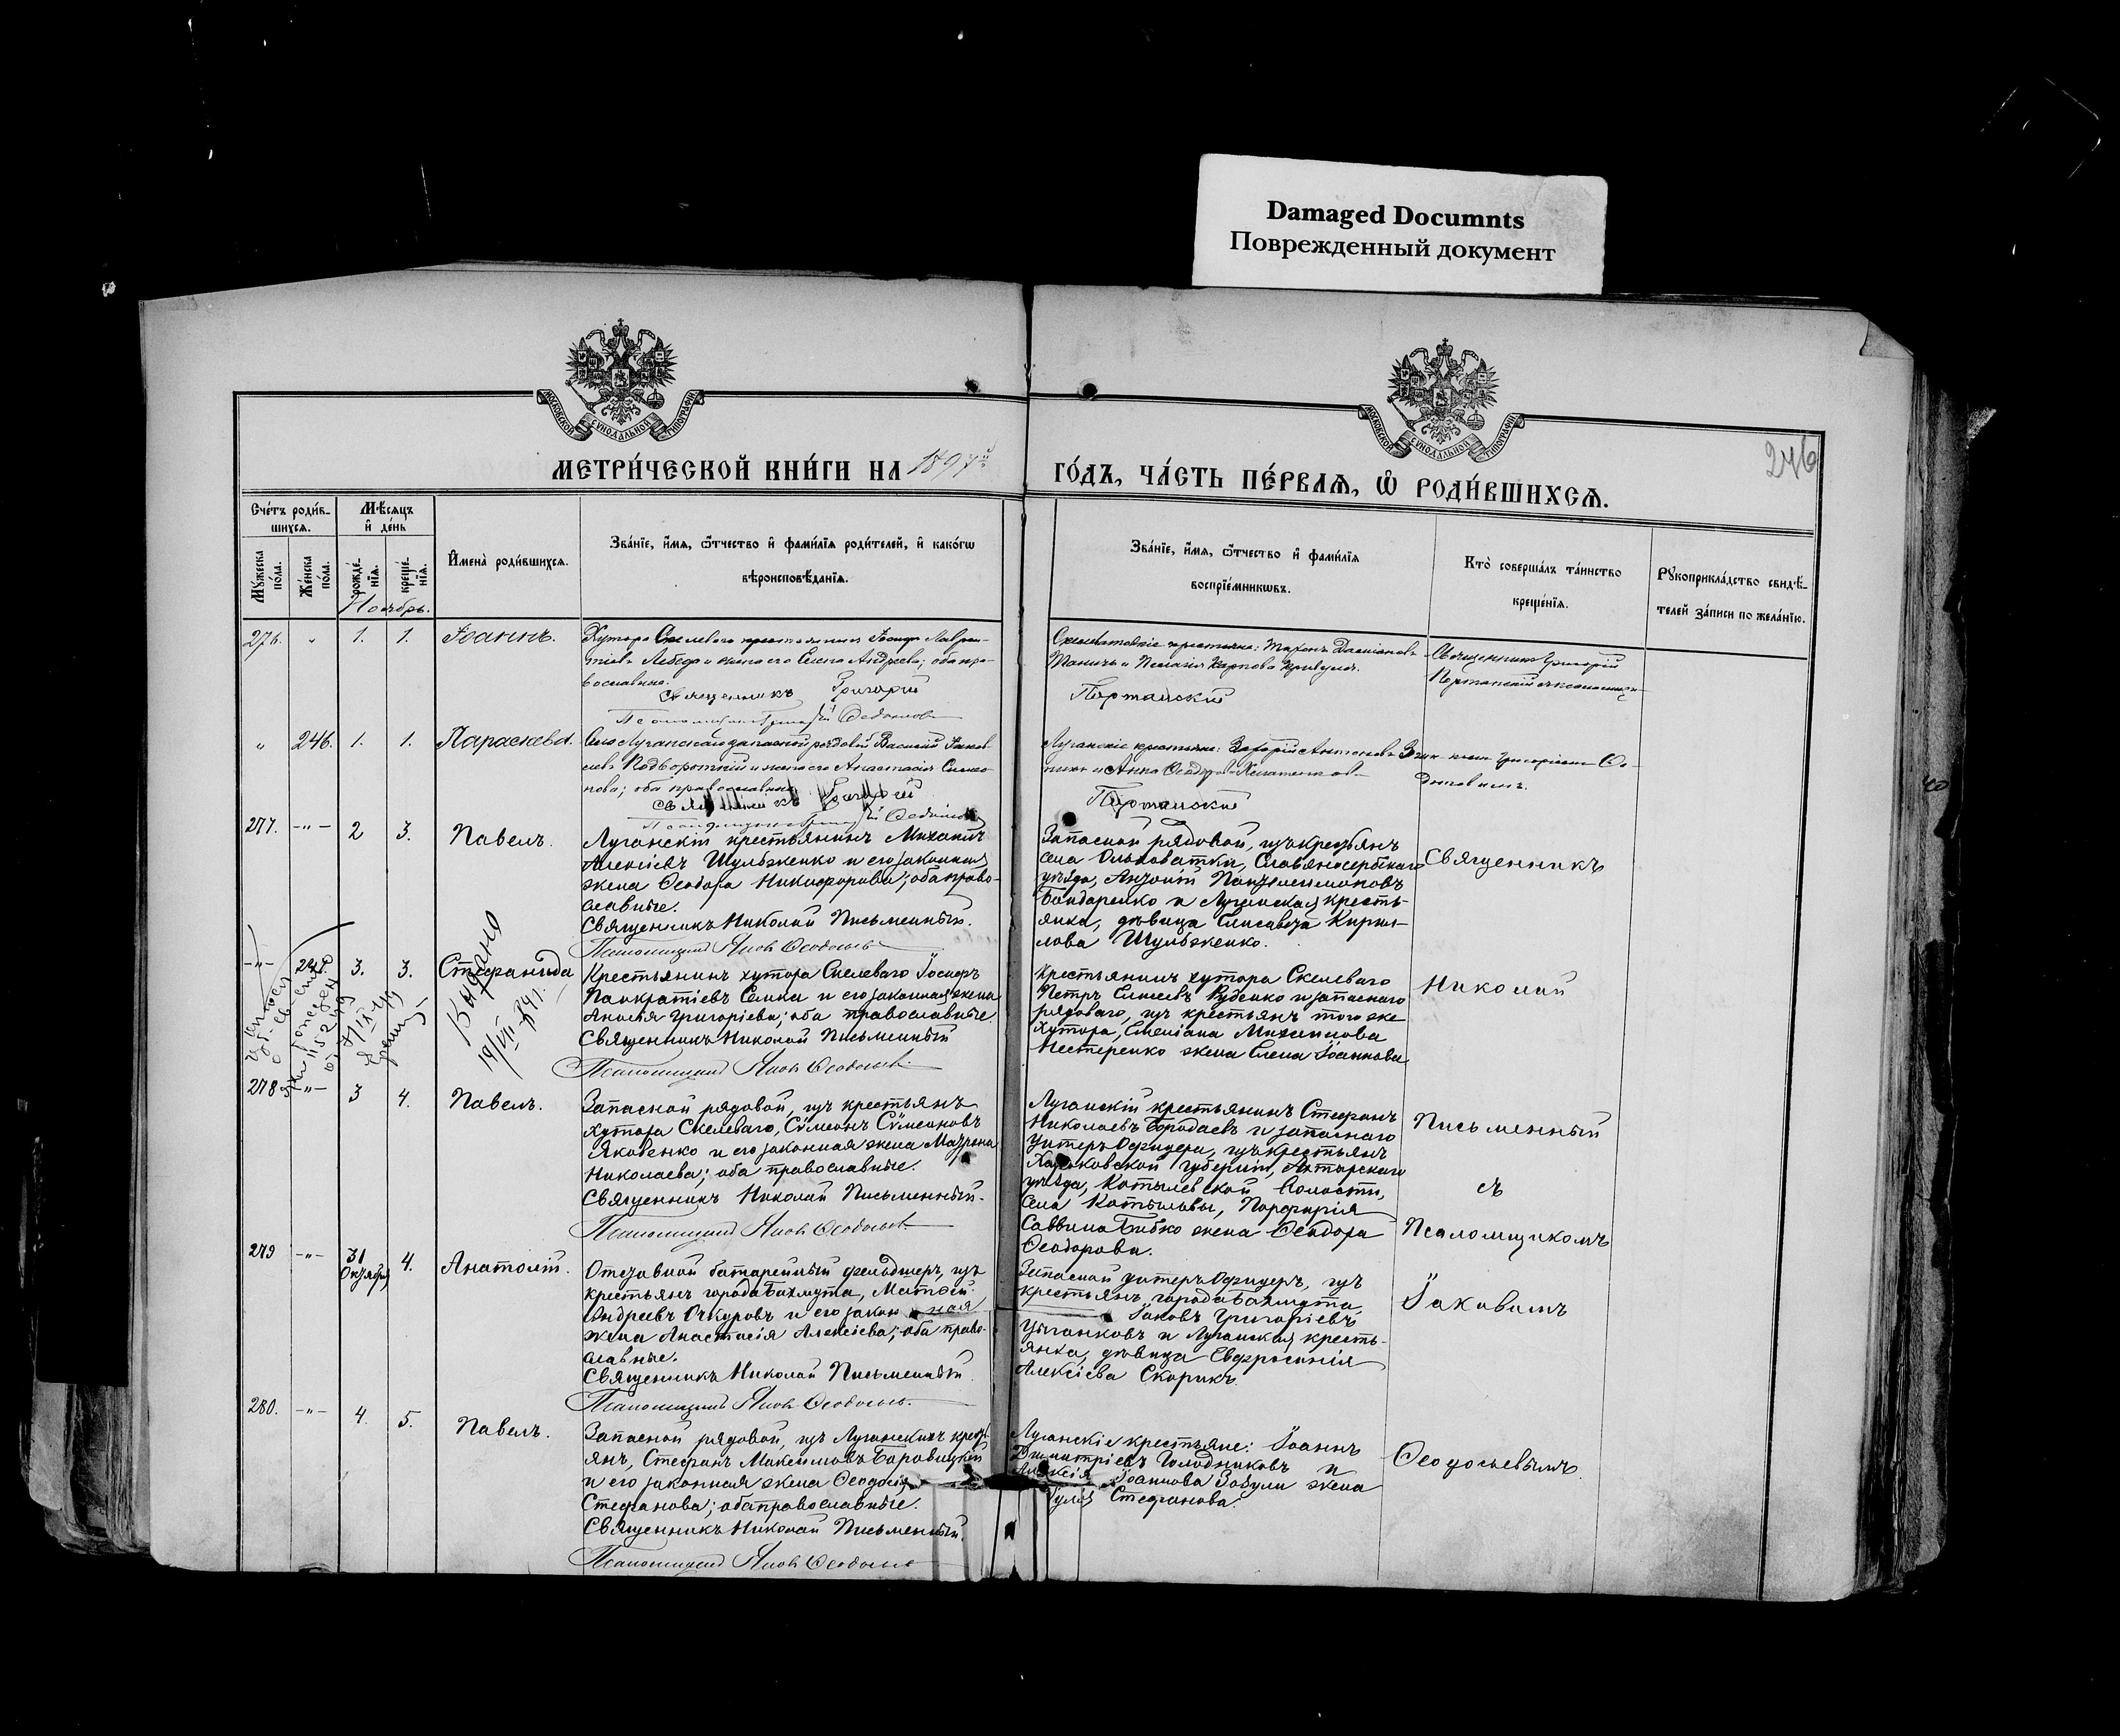 Damaged Documnts
Поврежденный документ
МОСКОВСКОЙ СѴНОДАЛЬНОЙ ТИПОГРАФІИ
МОСКОВСКОЙ СѴНОДАЛЬНОЙ ТИПОГРАФІИ
246
МЕТРИ́ЧЕСКОЙ КНИ́ГИ НА 1897й
ГО́ДЪ, ЧА́СТЬ ПЕ́РВАѦ, Ѡ҆ РОДИ́ВШИХСѦ.
Сче́тъ роди́в-
шихсѧ.
Мꙋ́жеска по́ла.
Же́нска по́ла.
Мѣ́сѧцъ
и҆ де́нь
рожде́-нїѧ.
креще́-нїѧ.
И҆мена̀ роди́вшихсѧ.
Зва́нїе, и҆́мѧ, ѻ҆́тчество и҆ фами́лїѧ роди́телей, и҆ како́гѡ
вѣроисповѣ́данїѧ.
Зва́нїе, и҆́мѧ, ѻ҆́тчество и҆ фами́лїѧ
воспрїе́мникѡвъ.
Кто̀ соверша́лъ та́инство
креще́нїѧ.
Рꙋкоприкла́дство свидѣ́-
телей за́писи по жела́нїю.
Ноябрь.
276. " 1. 1. Іоаннъ.
Хутора Скелеваго крестьянинъ Іосифъ Лаврен-
тіевъ Лебедь и жена его Елена Андреева; оба пра-
вославные.
Священникъ Григорій
Портанскій
Псаломщикъ Григорій Ѳедоновъ
крестьяне: Даміановъ
и Пелагія Карпова
Священникъ Григорій
Портанскій
" 246. 1. 1. Параскева.
Села Луганскаго запасной рядовой Василій
Подворотній и жена его Анастасія Симео-
нова; оба православные.
Священникъ Григорій
Портанскій
Луганскіе крестьяне: Захарій Антоновъ
и Анна
Григоріемъ
277. -"- 2 3. Павелъ.
Луганскій крестьянинъ Михаилъ
Алексіевъ Шульженко и его законная
жена Ѳеодора Никифорова; оба право-
славные.
Священникъ Николай Письменный.
Псаломщикъ Яковъ Ѳеодосьевъ
Запасной рядовой, изъ крестьянъ
села Ольховатки, Славяносербскаго
уѣзда, Антоній Пантелеимоновъ
Бондаренко и Луганская кресть-
янка, дѣвица Елисавета Кирил-
лова Шульженко.
Священникъ
-"- 247. 3. 3. Стефанида
Выдано
19/VII 1941.
Крестьянинъ хутора Скелеваго Іосифъ
Панкратіевъ Семка и его законная жена
Анисія Григоріева; оба православные.
Священникъ Николай Письменный
Псаломщикъ Яковъ Ѳеодосьевъ
Крестьянинъ хутора Скелеваго
Петръ Елисеевъ Руденко и запаснаго
рядоваго, изъ крестьянъ того же
хутора, Емеліана Михаилова
Нестеренко жена Елена Іоаннова
Николай
278 -"- 3 4. Павелъ.
Запасной рядовой, изъ крестьянъ
хутора Скелеваго, Сѵмеонъ Сѵмеоновъ
Яковенко и его законная жена Матрона
Николаева; оба православные.
Священникъ Николай Письменный.
Псаломщикъ Яковъ Ѳеодосьевъ
Луганскій крестьянинъ Стефанъ
Николаевъ Бородаевъ и запаснаго
унтеръ-офицера, изъ крестьянъ
Харьковской губерніи, Ахтырскаго
уѣзда, Котелевской волости,
села Котельвы, Порфирія
Саввина Бибко жена Ѳеодора
Ѳеодорова.
Письменный
съ
Псаломщикомъ
279 -"- 31
Октября 4. Анатолій.
Отставной батарейный фельдшеръ, изъ
крестьянъ города Бахмута, Матѳей
Андреевъ Очкуровъ и его закон ная
жена Анастасія Алексіева; оба право-
славные.
Священникъ Николай Письменный.
Псаломщикъ Яковъ Ѳеодосьевъ.
Запасной унтеръ-офицеръ, изъ
крестьянъ города Бахмута,
Іаковъ Григоріевъ
Цыганковъ и Луганская кресть-
янка, дѣвица Евфросинія
Алексіева Скорикъ.
Іаковомъ
280. -"- 4. 5. Павелъ.
Запасной рядовой, изъ Луганскихъ кресть-
янъ, Стефанъ Максимовъ Боровицкій
и его законная жена Ѳеодосія
Стефанова; оба православные.
Священникъ Николай Письменный.
Псаломщикъ Яковъ Ѳеодосьевъ
Луганскіе крестьяне: Іоаннъ
Димитріевъ Голодниковъ и
Алексія Іоаннова Зозули жена
Іулія Стефанова.
Ѳеодосьевымъ.